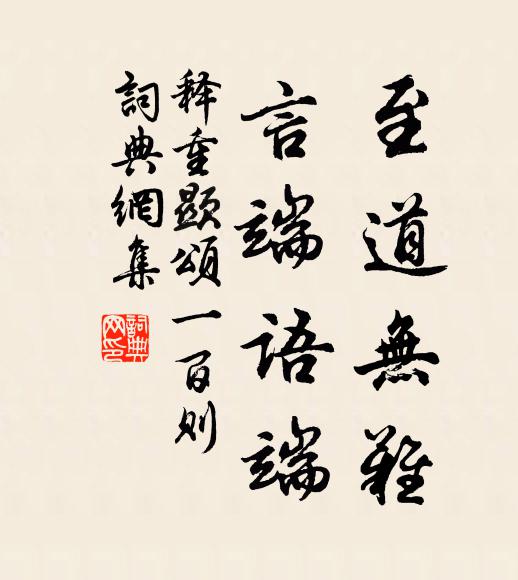 至道無難
言端語端
释重顯頌一百则
詞典網集
詞典網印